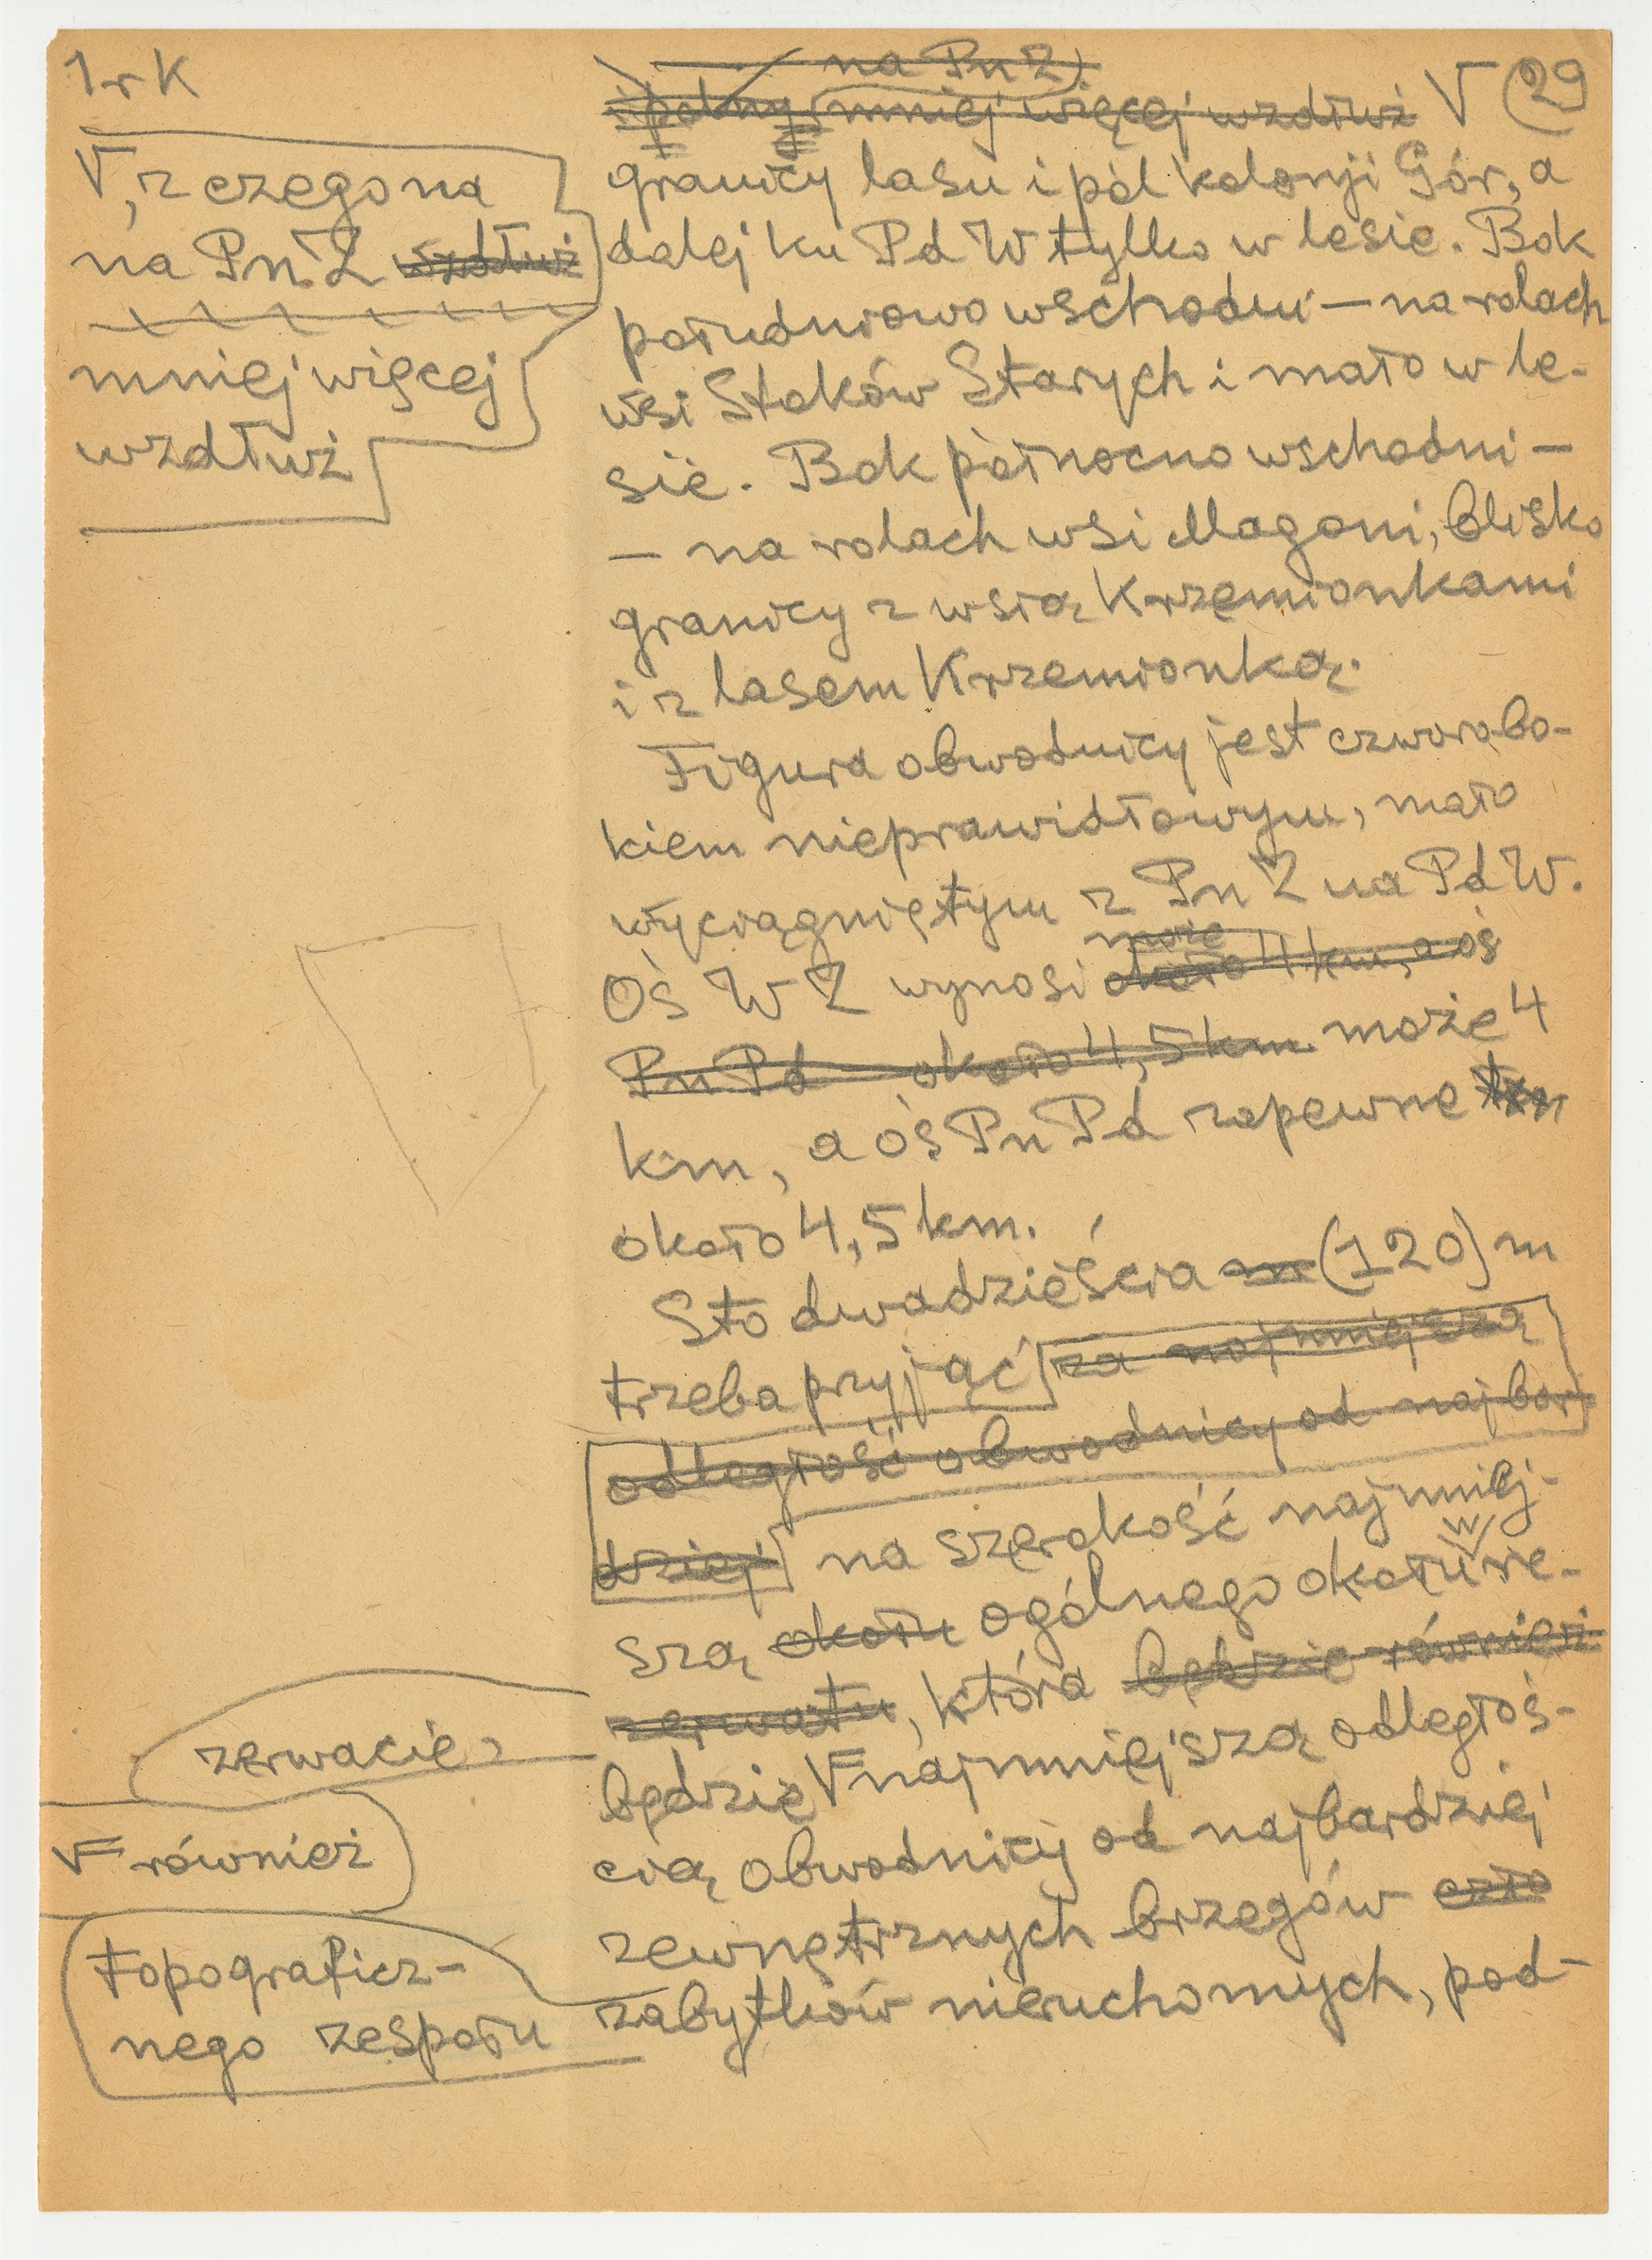 1rK
V, z czego na
na PnZ wzdłuż
mniej więcej
wzdłuż
na PnZ)
i polny, mniej więcej wzdłuż V 29
granicy lasu i pól kolonji Gór, a
dalej ku PdW tylko w lesie. Bok
południowo wschodni — na rolach
wsi Stoków Starych i mało w le-
sie. Bok północno wschodni —
— na rolach wsi Magoni, blisko
granicy z wsią Krzemionkami
i z lasem Krzemionką.
Figura obwodnicy jest czworobo-
kiem nieprawidłowym, mało
wyciągniętym z PnZ na PdW.
może
Oś WZ wynosi około 4 km, a oś
PnPd — około 4,5 km. może 4
km, a oś PnPd zapewne
około 4,5 km.
Sto dwadzieścia m (120) m
trzeba przyjąć za najmniejszą
odległość obwodnicy od najbar-
dziej na szerokość najmniej-
szą okołu ogólnego okołu ze-
zerwatu, która będzie również
będzie V najmniejszą odległoś-
cią obwodnicy od najbardziej
zewnętrznych brzegów
zabytków nieruchomych, pod-
zerwacie
V również
topograficz-
nego zespołu